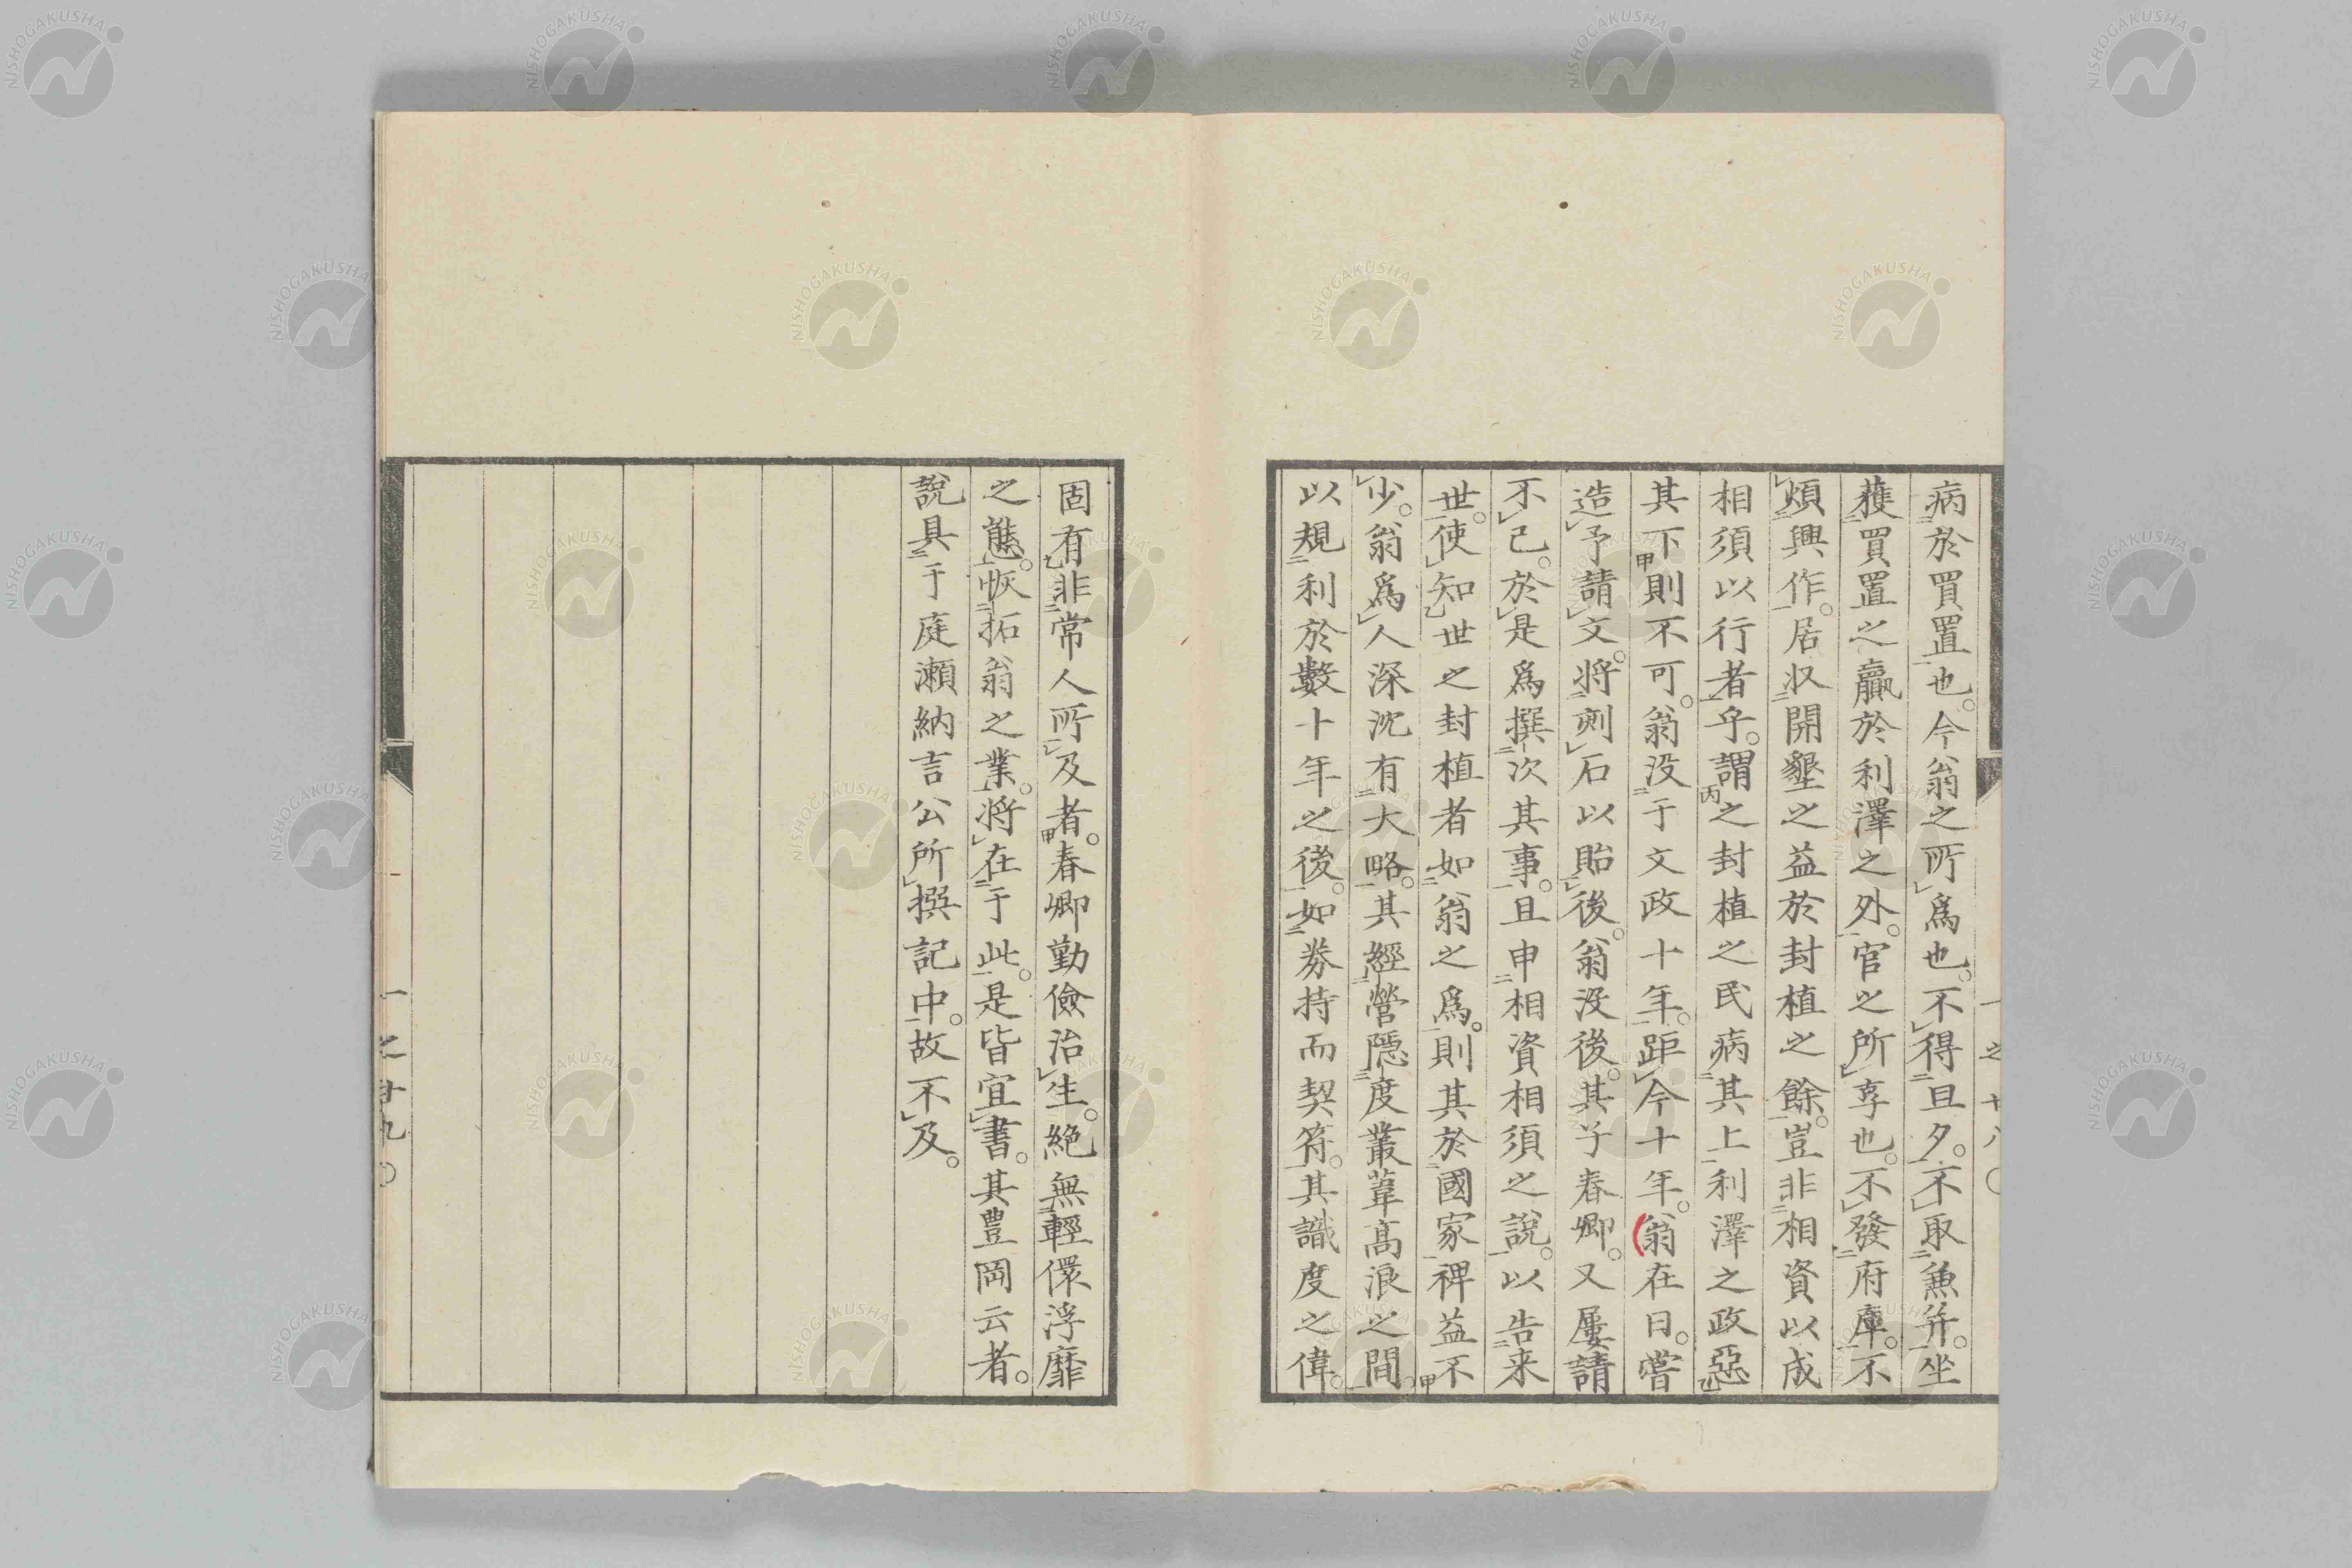 病於買置也。今翁之所爲也。不得旦夕。不取兼并。坐
獲買置之贏於利澤之外。官之所享也。不發府庫。不
煩興作。居収開墾之益於封植之餘。豈非相資以成
相須以行者乎。謂之封植之民病其上利澤之政惡
其下則不可。翁没于文政十年。距今十年。翁在日。嘗
造予請文。將刻石以貽後。翁没後。其子春卿。又屢請
不已。於是爲撰次其事。且申相資相須之說。以告来
世。使知世之封植者如翁之爲。則其於國家裨益不
少。翁爲人深沈有大略。其經營隱度叢葦高浪之間。
以規利於數十年之後。如券持而契符。其識度之偉。
一之廿八
固有非常人所及者。春卿勤儉治生。絶無輕儇浮靡
之態。恢拓翁之業。將在于此。是皆宜書。其豊岡云者。
說具于庭瀬納言公所撰記中。故不及。
一之廿九
NISHOGAKUSHA